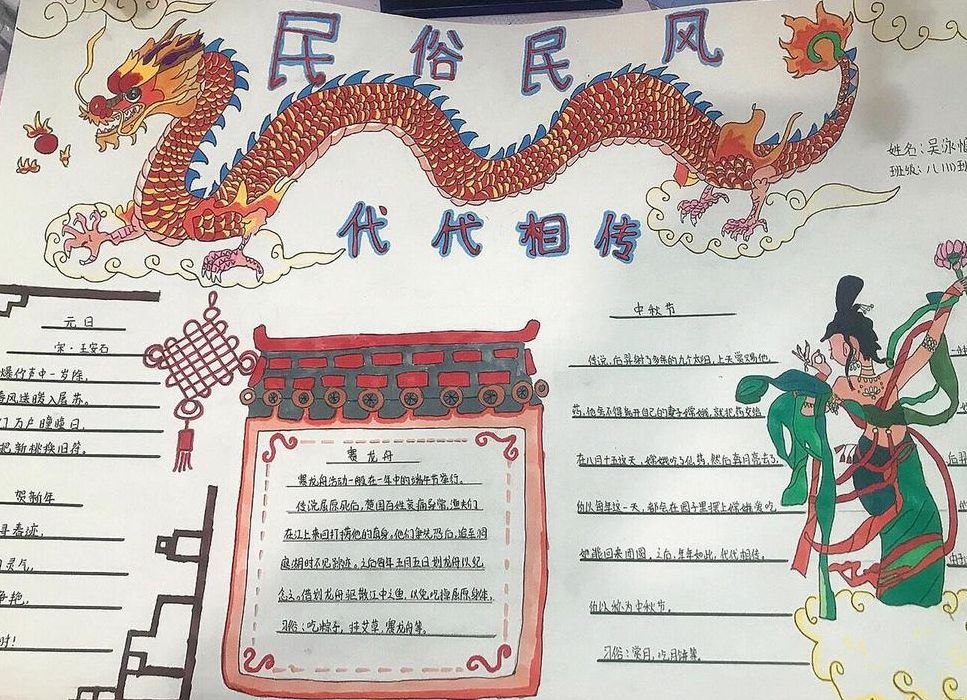 民俗民风
代代相传
姓名：吴泳
班级：八（1）班
元日
宋·王安石
爆竹声中一岁除，
春风送暖入屠苏。
门万户曈曈日，
把新桃换旧符。
贺新年
寻春迹，
灵气，
争艳，
时！
赛龙舟
赛龙舟活动一般在一年中的端午节举行。
传说屈原死后，楚国百姓哀痛异常，渔夫们
在江上来回打捞他的真身。他们争先恐后，追至洞
庭湖时不见踪迹。之后每年五月五日划龙舟以纪
念之。借划龙舟驱散江中之鱼，以免吃掉屈原身体，
习俗：吃粽子，挂艾草，赛龙舟等。
中秋节
传说，后羿射了多余的九个太阳，上天赏赐他
药，他舍不得离开自己的妻子嫦娥，就把药交给
在八月十五这天，嫦娥吃了仙药，然后奔月亮去了。
所以每年这一天，都会在园子里摆上嫦娥爱吃
她能回来团圆，之后，年年如此，代代相传。
所以称为中秋节。
习俗：赏月，吃月饼等。